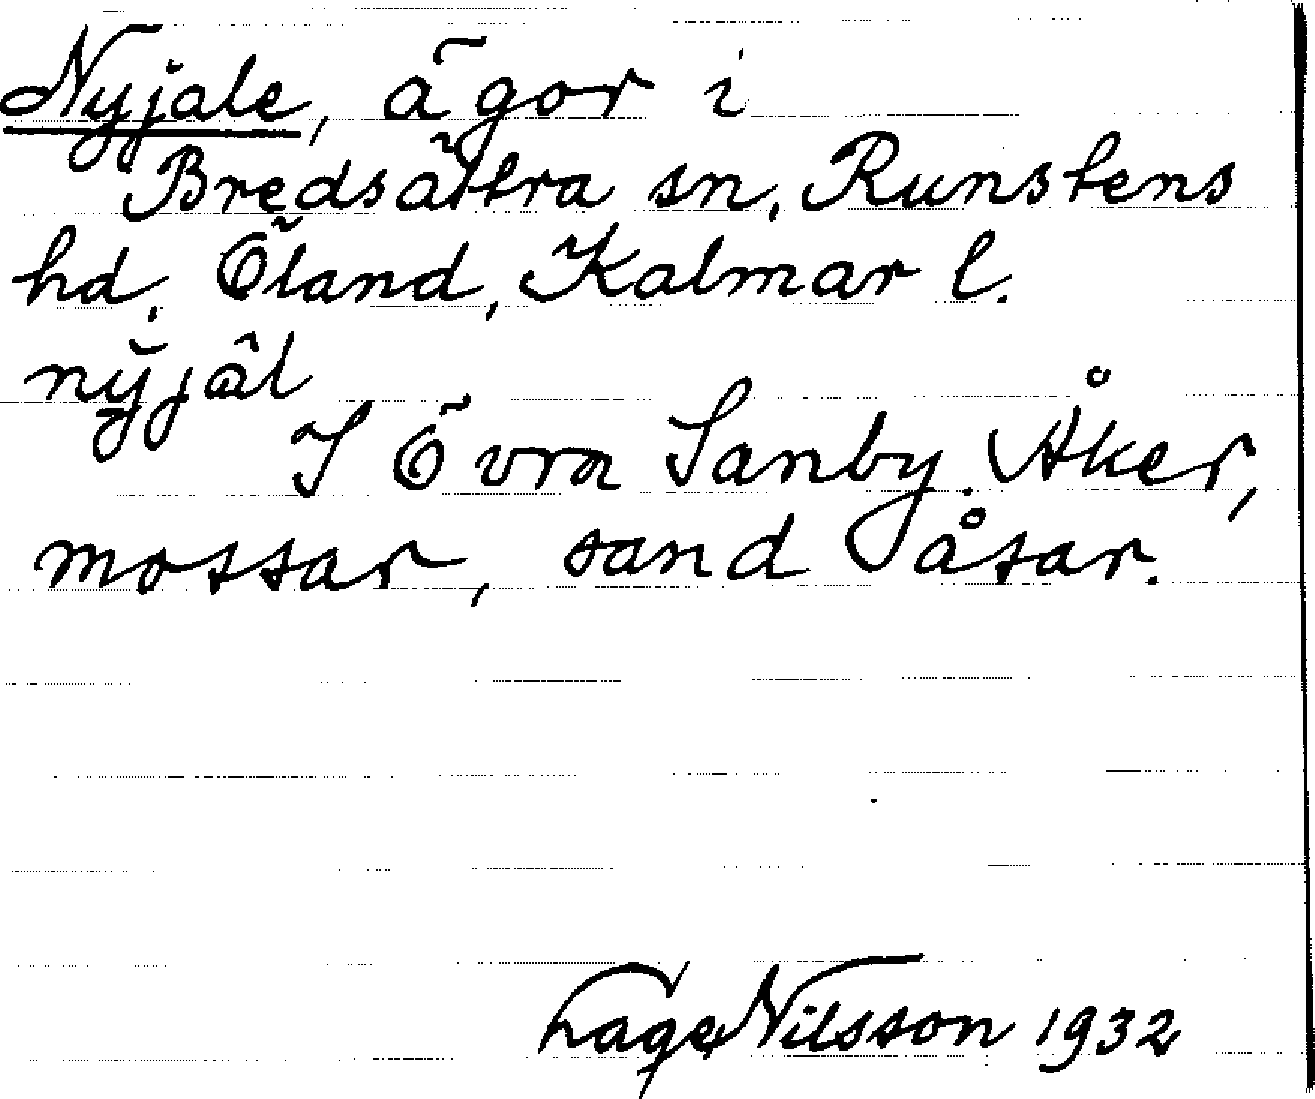 Nyjale, ägor i
Bredsättra sn, Runstens
hd, Öland, Kalmar l.
nyjâl
I Övra Sanby. Åker,
mossar, sand åsar.
Lage Nilsson 1932